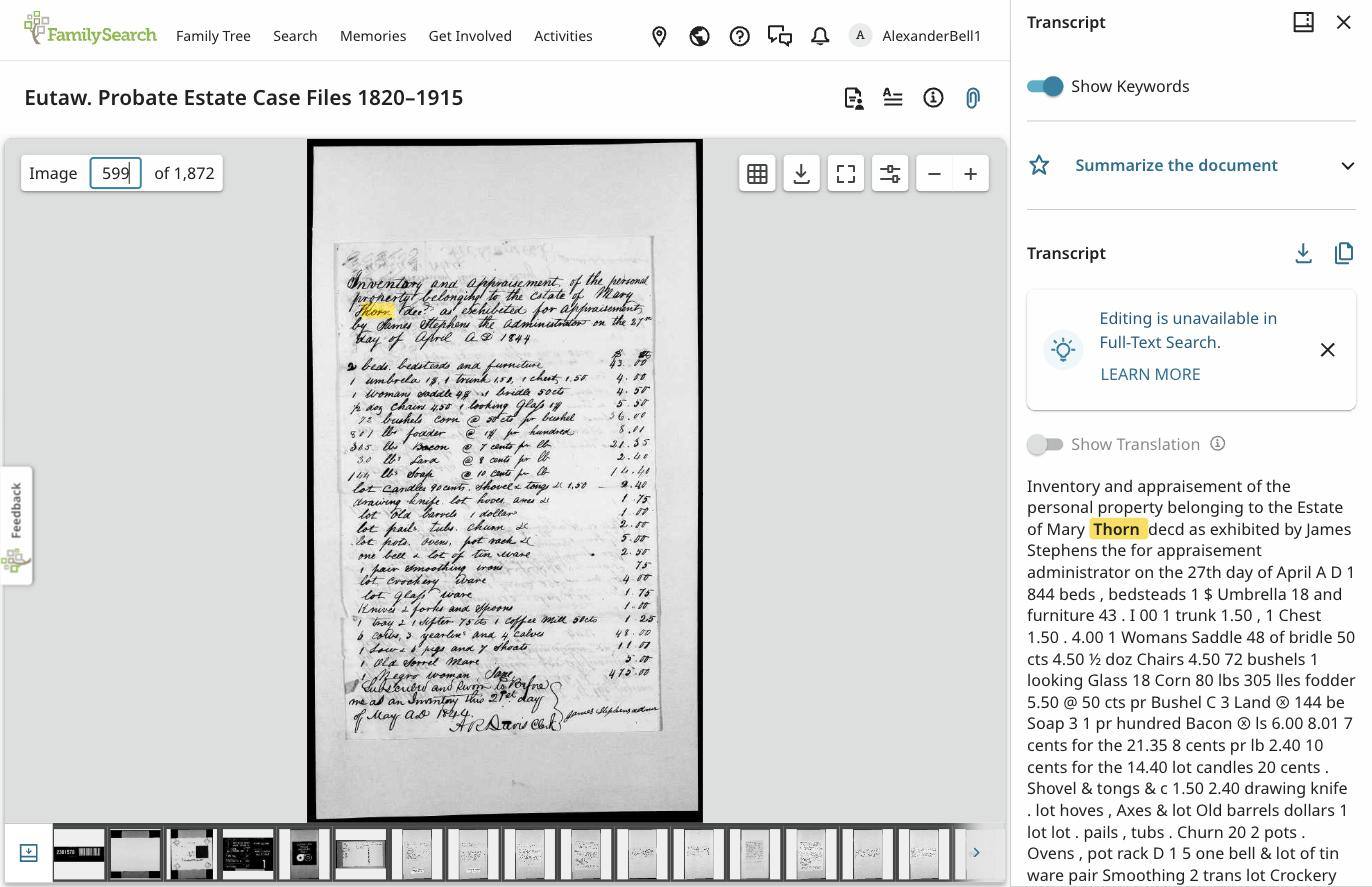 FamilySearch
Family Tree
Search
Memories
Get Involved
Activities
A
AlexanderBell1
Eutaw. Probate Estate Case Files 1820–1915
Image 599 of 1,872
Inventory and appraisement, of the personal
property belonging to the Estate of Mary
Thorn decd as exhibited for appraisement
by James Stephens the administrator on the 27th
day of April A D 1844
2 beds, bedsteads and furniture 43.00
1 umbrela 1$, 1 trunk 1.50, 1 chest, 1.50 4.00
1 Womans Saddle 4$ 1 bridle 50cts 4.50
½ doz Chairs 4.50 1 looking Glass 1$ 5.50
72 bushels corn @ 50cts pr bushel 36.00
801 lbs fodder @ 1$ pr hundred 8.01
305 lbs Bacon @ 7 cents pr lb 21.35
30 lbs Lard @ 8 cents pr lb 2.40
144 lbs Soap @ 10 cents pr lb 14.40
lot Candles 90 cents. Shovel & tongs &c 1,50 2.40
drawing knife, lot hoves, axes &c 1.75
lot Old barrels 1 dollar 1.00
lot pails, tubs, churn &c 2.00
lot pots, ovens, pot rack &c 5.00
one bell & lot of tin ware 2.50
1 pair Smoothing irons 75
lot Crockery Ware 4.00
lot glass ware 1.75
Knives & forks and Spoons 1.00
1 tray & 1 Sifter 75cts 1 coffee Mill 50cts 1.25
6 cows, 3 yearlins and 4 calves 48.00
1 Sow & 6 pigs and 7 Shoats 11.00
1 Old Sorrel Mare 5.00
1 Negro woman Jane 475.00
Subscribed and Sworn to Before
me as an Inventory this 21st day
of May AD 1844
James Stephens admr
Davis Clerk
Feedback
2381578
Transcript
Show Keywords
Summarize the document
Transcript
Editing is unavailable in
Full-Text Search.
LEARN MORE
Show Translation
Inventory and appraisement of the
personal property belonging to the Estate
of Mary Thorn decd as exhibited by James
Stephens the for appraisement
administrator on the 27th day of April A D 1
844 beds , bedsteads 1 $ Umbrella 18 and
furniture 43 . I 00 1 trunk 1.50 , 1 Chest
1.50 . 4.00 1 Womans Saddle 48 of bridle 50
cts 4.50 ½ doz Chairs 4.50 72 bushels 1
looking Glass 18 Corn 80 lbs 305 lles fodder
5.50 @ 50 cts pr Bushel C 3 Land ® 144 be
Soap 3 1 pr hundred Bacon ® ls 6.00 8.01 7
cents for the 21.35 8 cents pr lb 2.40 10
cents for the 14.40 lot candles 20 cents .
Shovel & tongs & c 1.50 2.40 drawing knife
. lot hoves , Axes & lot Old barrels dollars 1
lot lot . pails , tubs . Churn 20 2 pots .
Ovens , pot rack D 1 5 one bell & lot of tin
ware pair Smoothing 2 trans lot Crockery